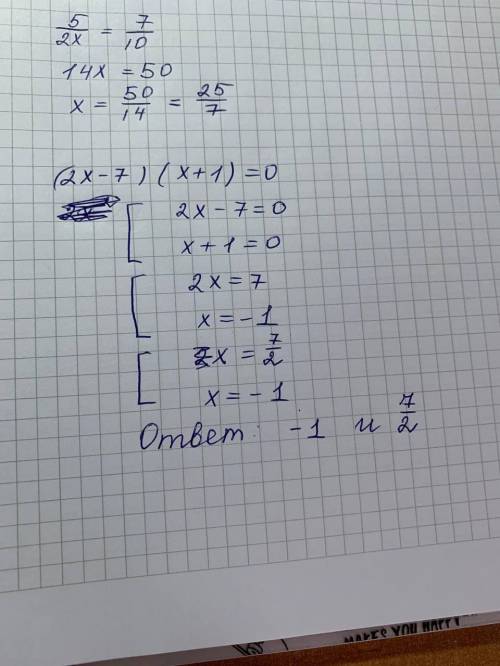 5/2x = 7/10
14x = 50
x = 50/14 = 25/7
(2x-7)(x+1)=0
[ 2x-7=0
x+1=0
[ 2x=7
x=-1
[ x = 7/2
x=-1
Ответ: -1 и 7/2
MAKES YOU HAPPY